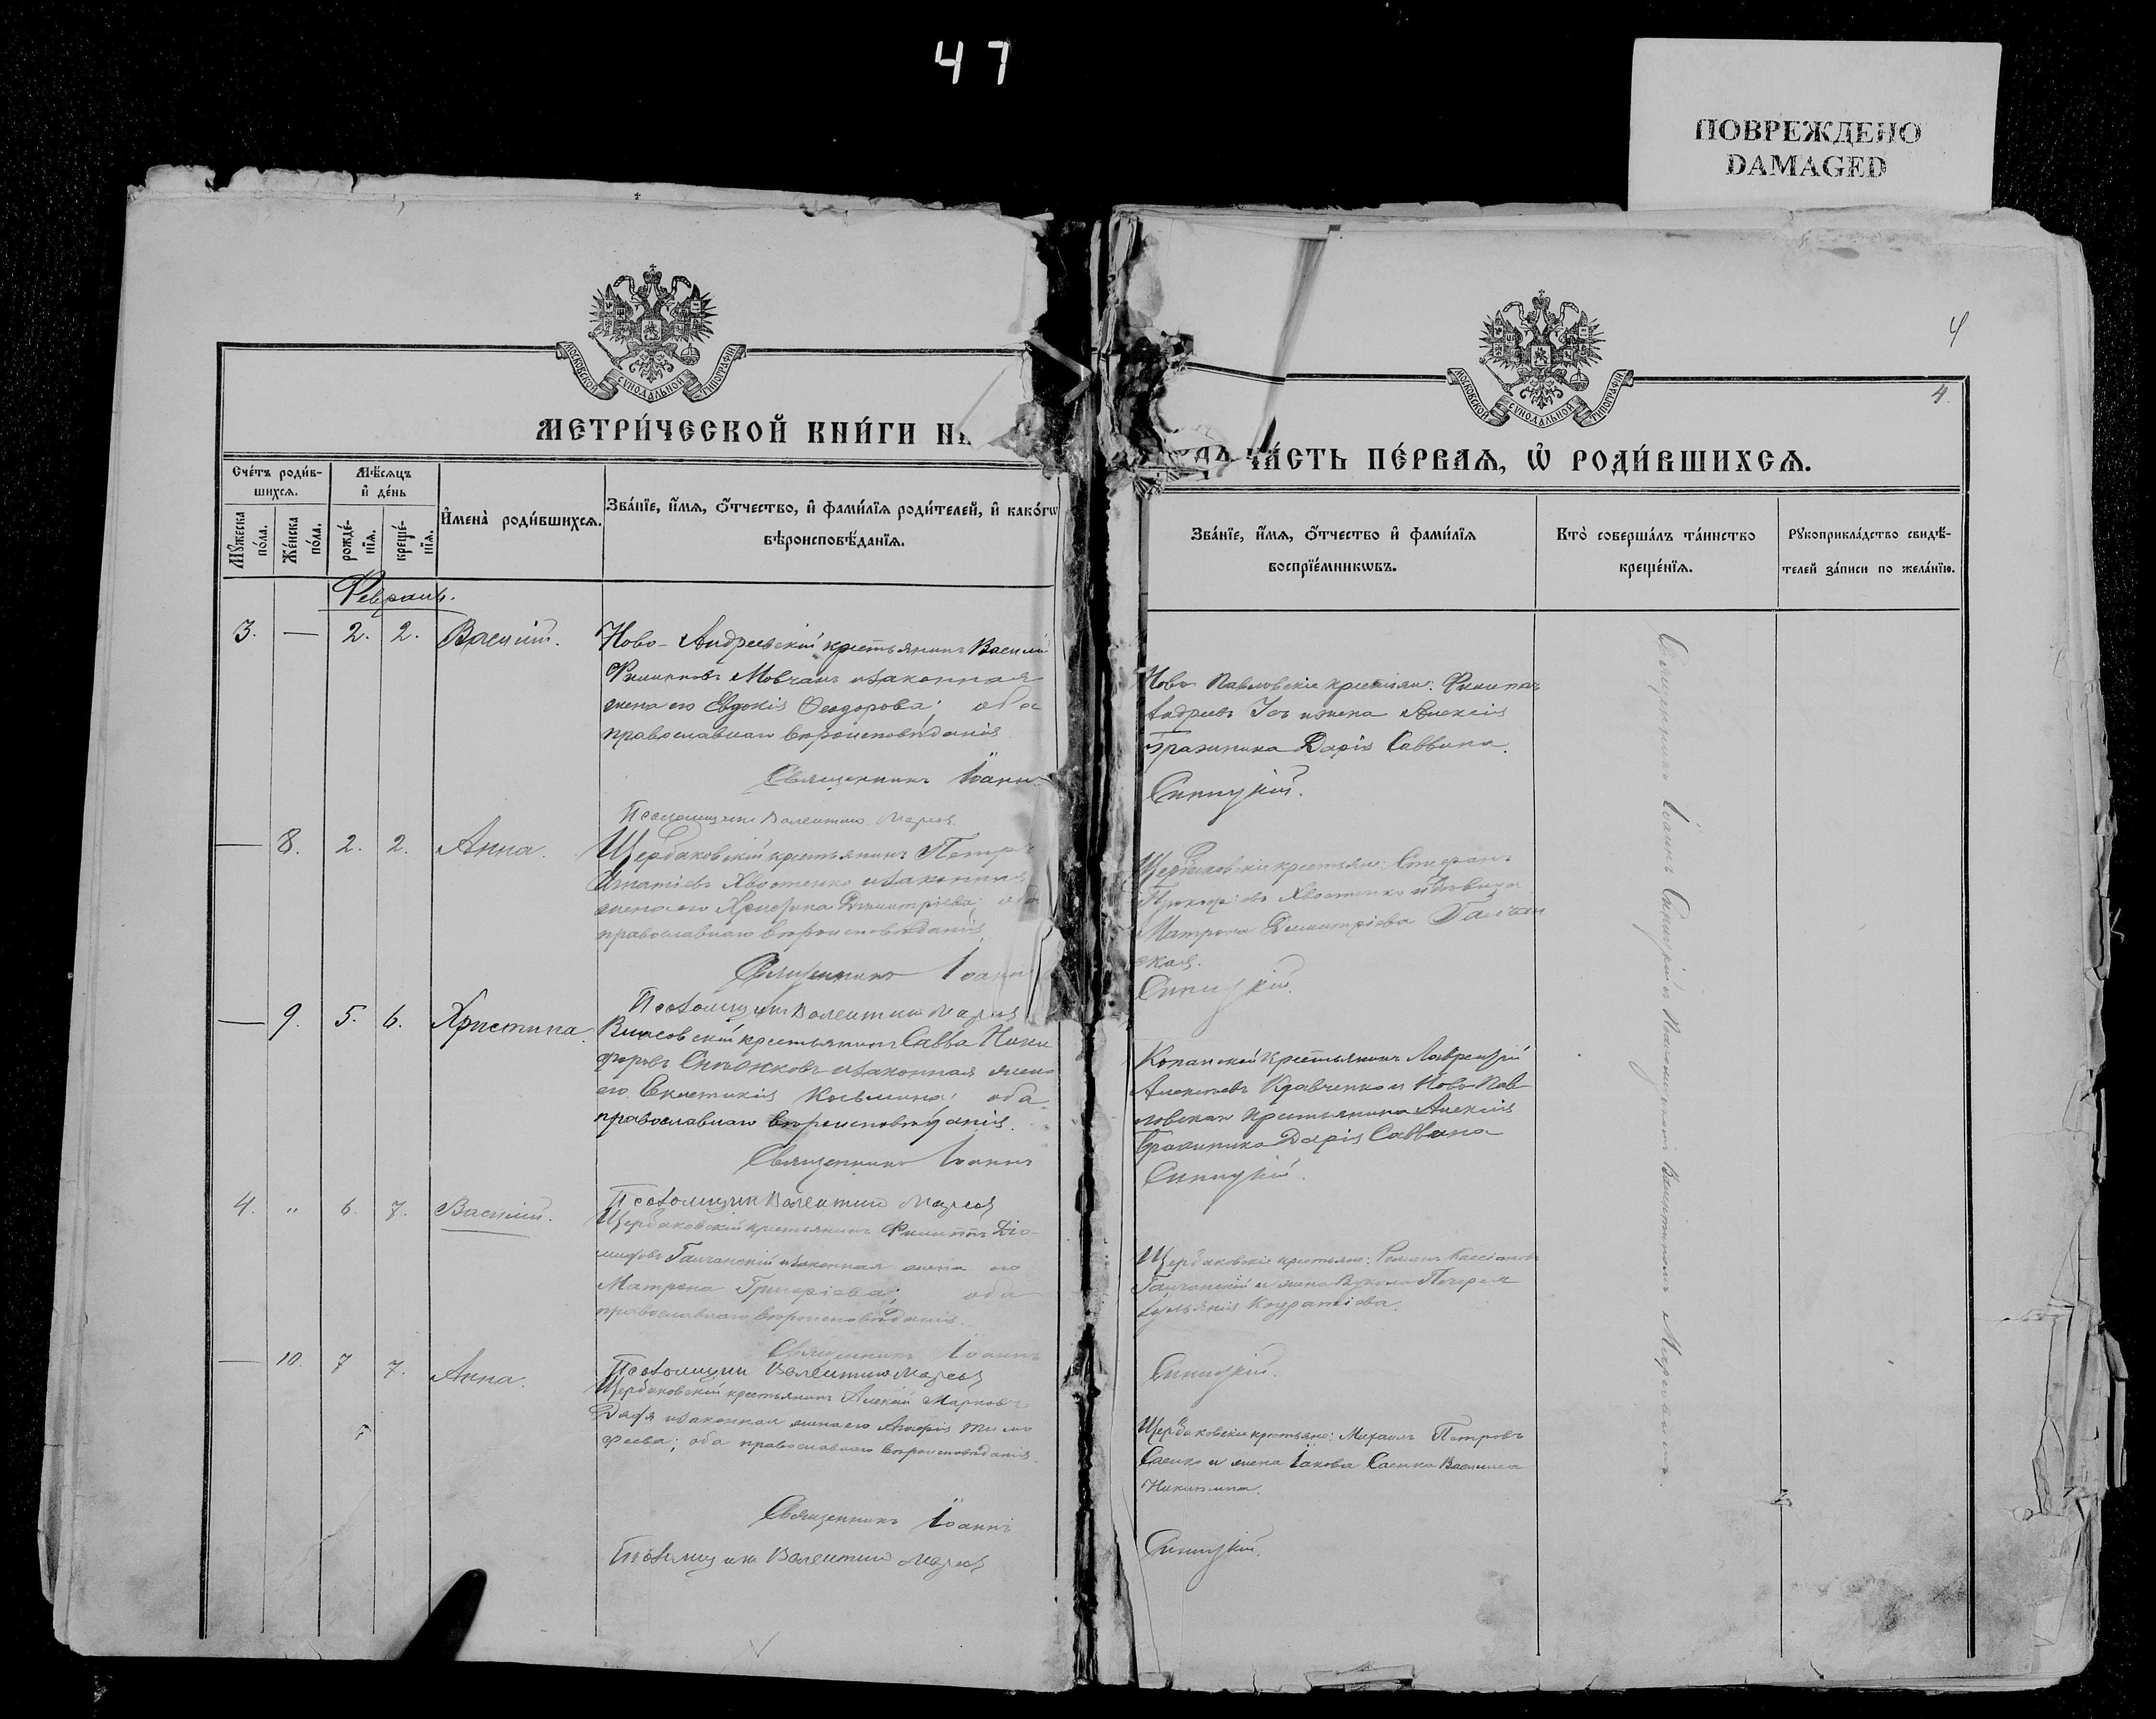 47
ПОВРЕЖДЕНО
DAMAGED
4
4.
МОСКОВСКОЙ СУНОДАЛЬНОЙ ТИПОГРАФІИ
МОСКОВСКОЙ СУНОДАЛЬНОЙ ТИПОГРАФІИ
МЕТРИ́ЧЕСКОЙ КНИ́ГИ НА
ЧА́СТЬ ПЕ́РВАѦ, Ѡ҆ РОДИ́ВШИХСѦ.
Сче́тъ роди́в-
шихсѧ.
Мѣ́сѧцъ
и҆ де́нь
Мꙋжеска
по́ла.
Же́нска
по́ла.
рожде́-
нїѧ.
креще́-
нїѧ.
И҆мена̀ роди́вшихсѧ.
Зва́нїе, и҆́мѧ, ѻ҆́тчество, и҆ фами́лїѧ роди́телей, и҆ како́гѡ
вѣроисповѣ́данїѧ.
Зва́нїе, и҆́мѧ, ѻ҆́тчество и҆ фами́лїѧ
воспрїе́мникѡвъ.
Кто̀ соверша́лъ та́инство
креще́нїѧ.
Рꙋкоприкла́дство свидѣ́-
телей за́писи по жела́нїю.
Февраль.
3. — 2. 2. Василій.
Ново-Андреевскій крестьянинъ Василій
Филипповъ Мовчанъ и законная
жена его Евдокія Ѳеодорова; оба
православнаго вѣроисповѣданія
Священникъ Іоаннъ
Псаломщикъ Валентинъ
Ново Павловскіе крестьяне: Филиппъ
Андреевъ и жена Алексія
Бражника Дарія Саввина.
Синицкій.
— 8. 2. 2. Анна.
Щербаковскій крестьянинъ Петръ
Игнатіевъ Хвостенко и законная
жена его Христина Димитріева; оба
православнаго вѣроисповѣданія
Священникъ Іоаннъ
Псаломщикъ Валентинъ
Щербаковскіе крестьяне: Стефанъ
Прокофіевъ Хвостенко и вдовица
Матрона Димитріева Галчан
ская.
Синицкій.
— 9. 5. 6. Христина.
крестьянинъ Савва Ники
форовъ и законная жена
его Евкистикія Косьмина; оба
православнаго вѣроисповѣданія.
Священникъ Іоаннъ
Псаломщикъ Валентинъ
Копанскій крестьянинъ Лаврентій
Алексѣевъ Кравченко и Ново Пав-
ловская крестьянина Алексія
Бражника Дарія Саввина
Синицкій.
4. „ 6. 7. Василій.
Щербаковскій крестьянинъ Филиппъ Діо-
мидовъ Галчанскій и законная жена его
Матрона Григоріева; оба
православнаго вѣроисповѣданія.
Священникъ Іоаннъ
Псаломщикъ Валентинъ
Щербаковскіе крестьяне: Романъ Кассіановъ
Галчанскій и жена Вукола
Іуліанія Кондратіева.
Синицкій.
— 10. 7 7. Анна.
Щербаковскій крестьянинъ Алексій Марковъ
и законная жена его Тимо
феева; оба православнаго вѣроисповѣданія.
Священникъ Іоаннъ
Псаломщикъ Валентинъ
Щербаковскіе крестьяне: Михаилъ Петровъ
Саенко и жена Іакова Саенка Василиса
Никитина.
Синицкій.
Священникъ Іоаннъ Синицкій съ Псаломщикомъ Валентиномъ